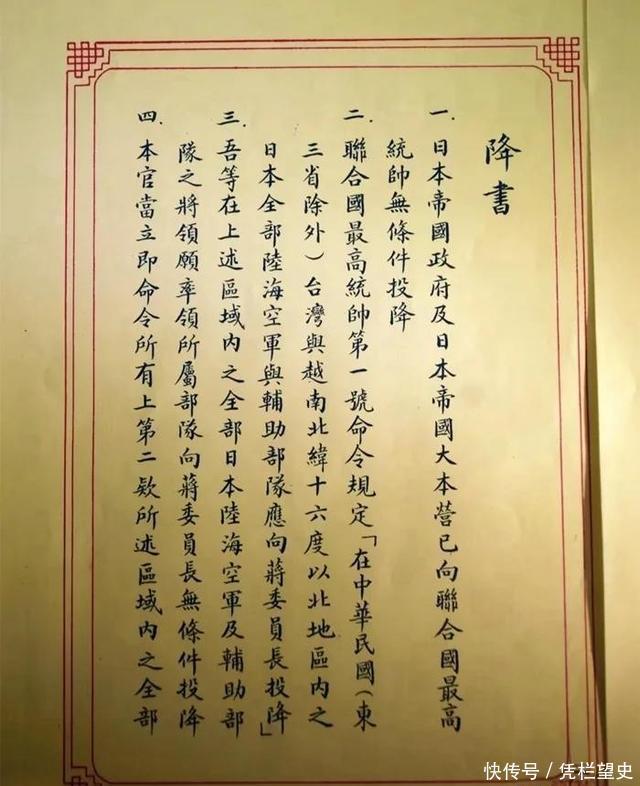 降書
一.日本帝國政府及日本帝國大本營已向聯合國最高
統帥無條件投降
二.聯合國最高統帥第一號命令規定「在中華民國(東
三省除外)台灣與越南北緯十六度以北地區內之
日本全部陸海空軍與輔助部隊應向蔣委員長投降」
三.吾等在上述區域內之全部日本陸海空軍及輔助部
隊之將領願率領所屬部隊向蔣委員長無條件投降
四.本官當立即命令所有上第二欵所述區域內之全部
快传号/凭栏望史